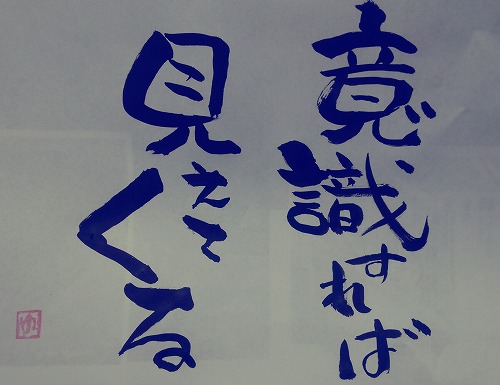 意識すれば
見えてくる